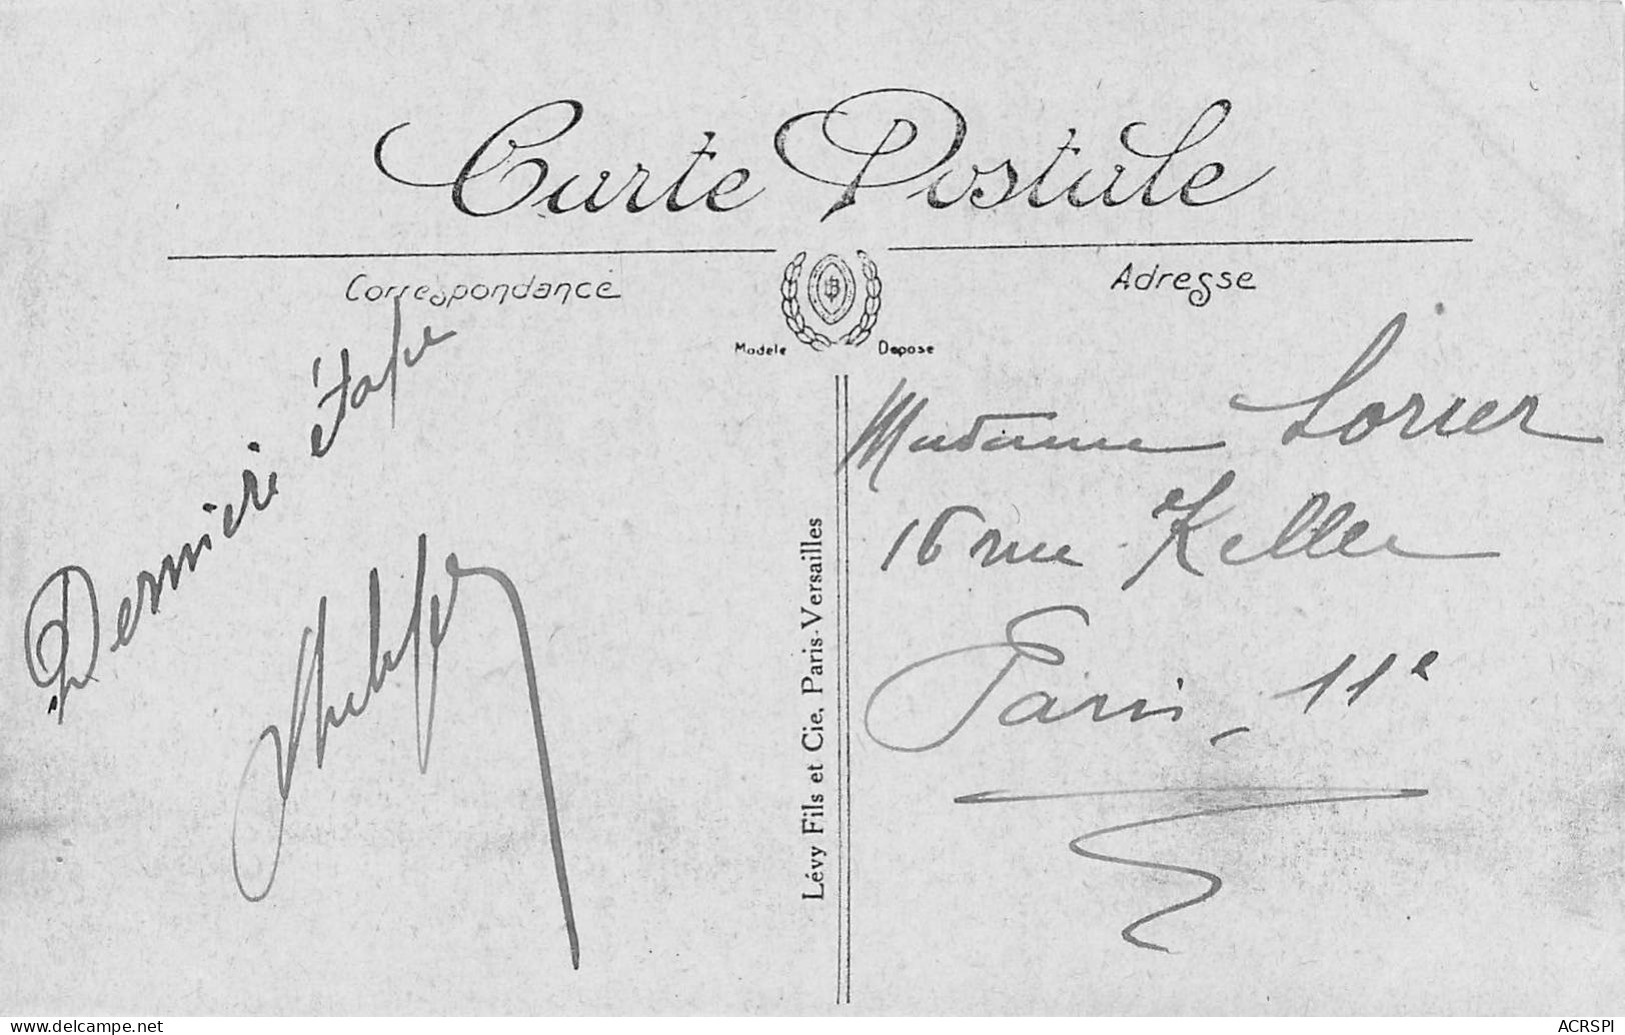 Carte Postale
Correspondance
Adresse
Modèle Déposé
Dernière étape
Madame Lorier
16 rue Keller
Paris - 11e
Lévy Fils et Cie, Paris-Versailles
www.delcampe.net
ACRSPI